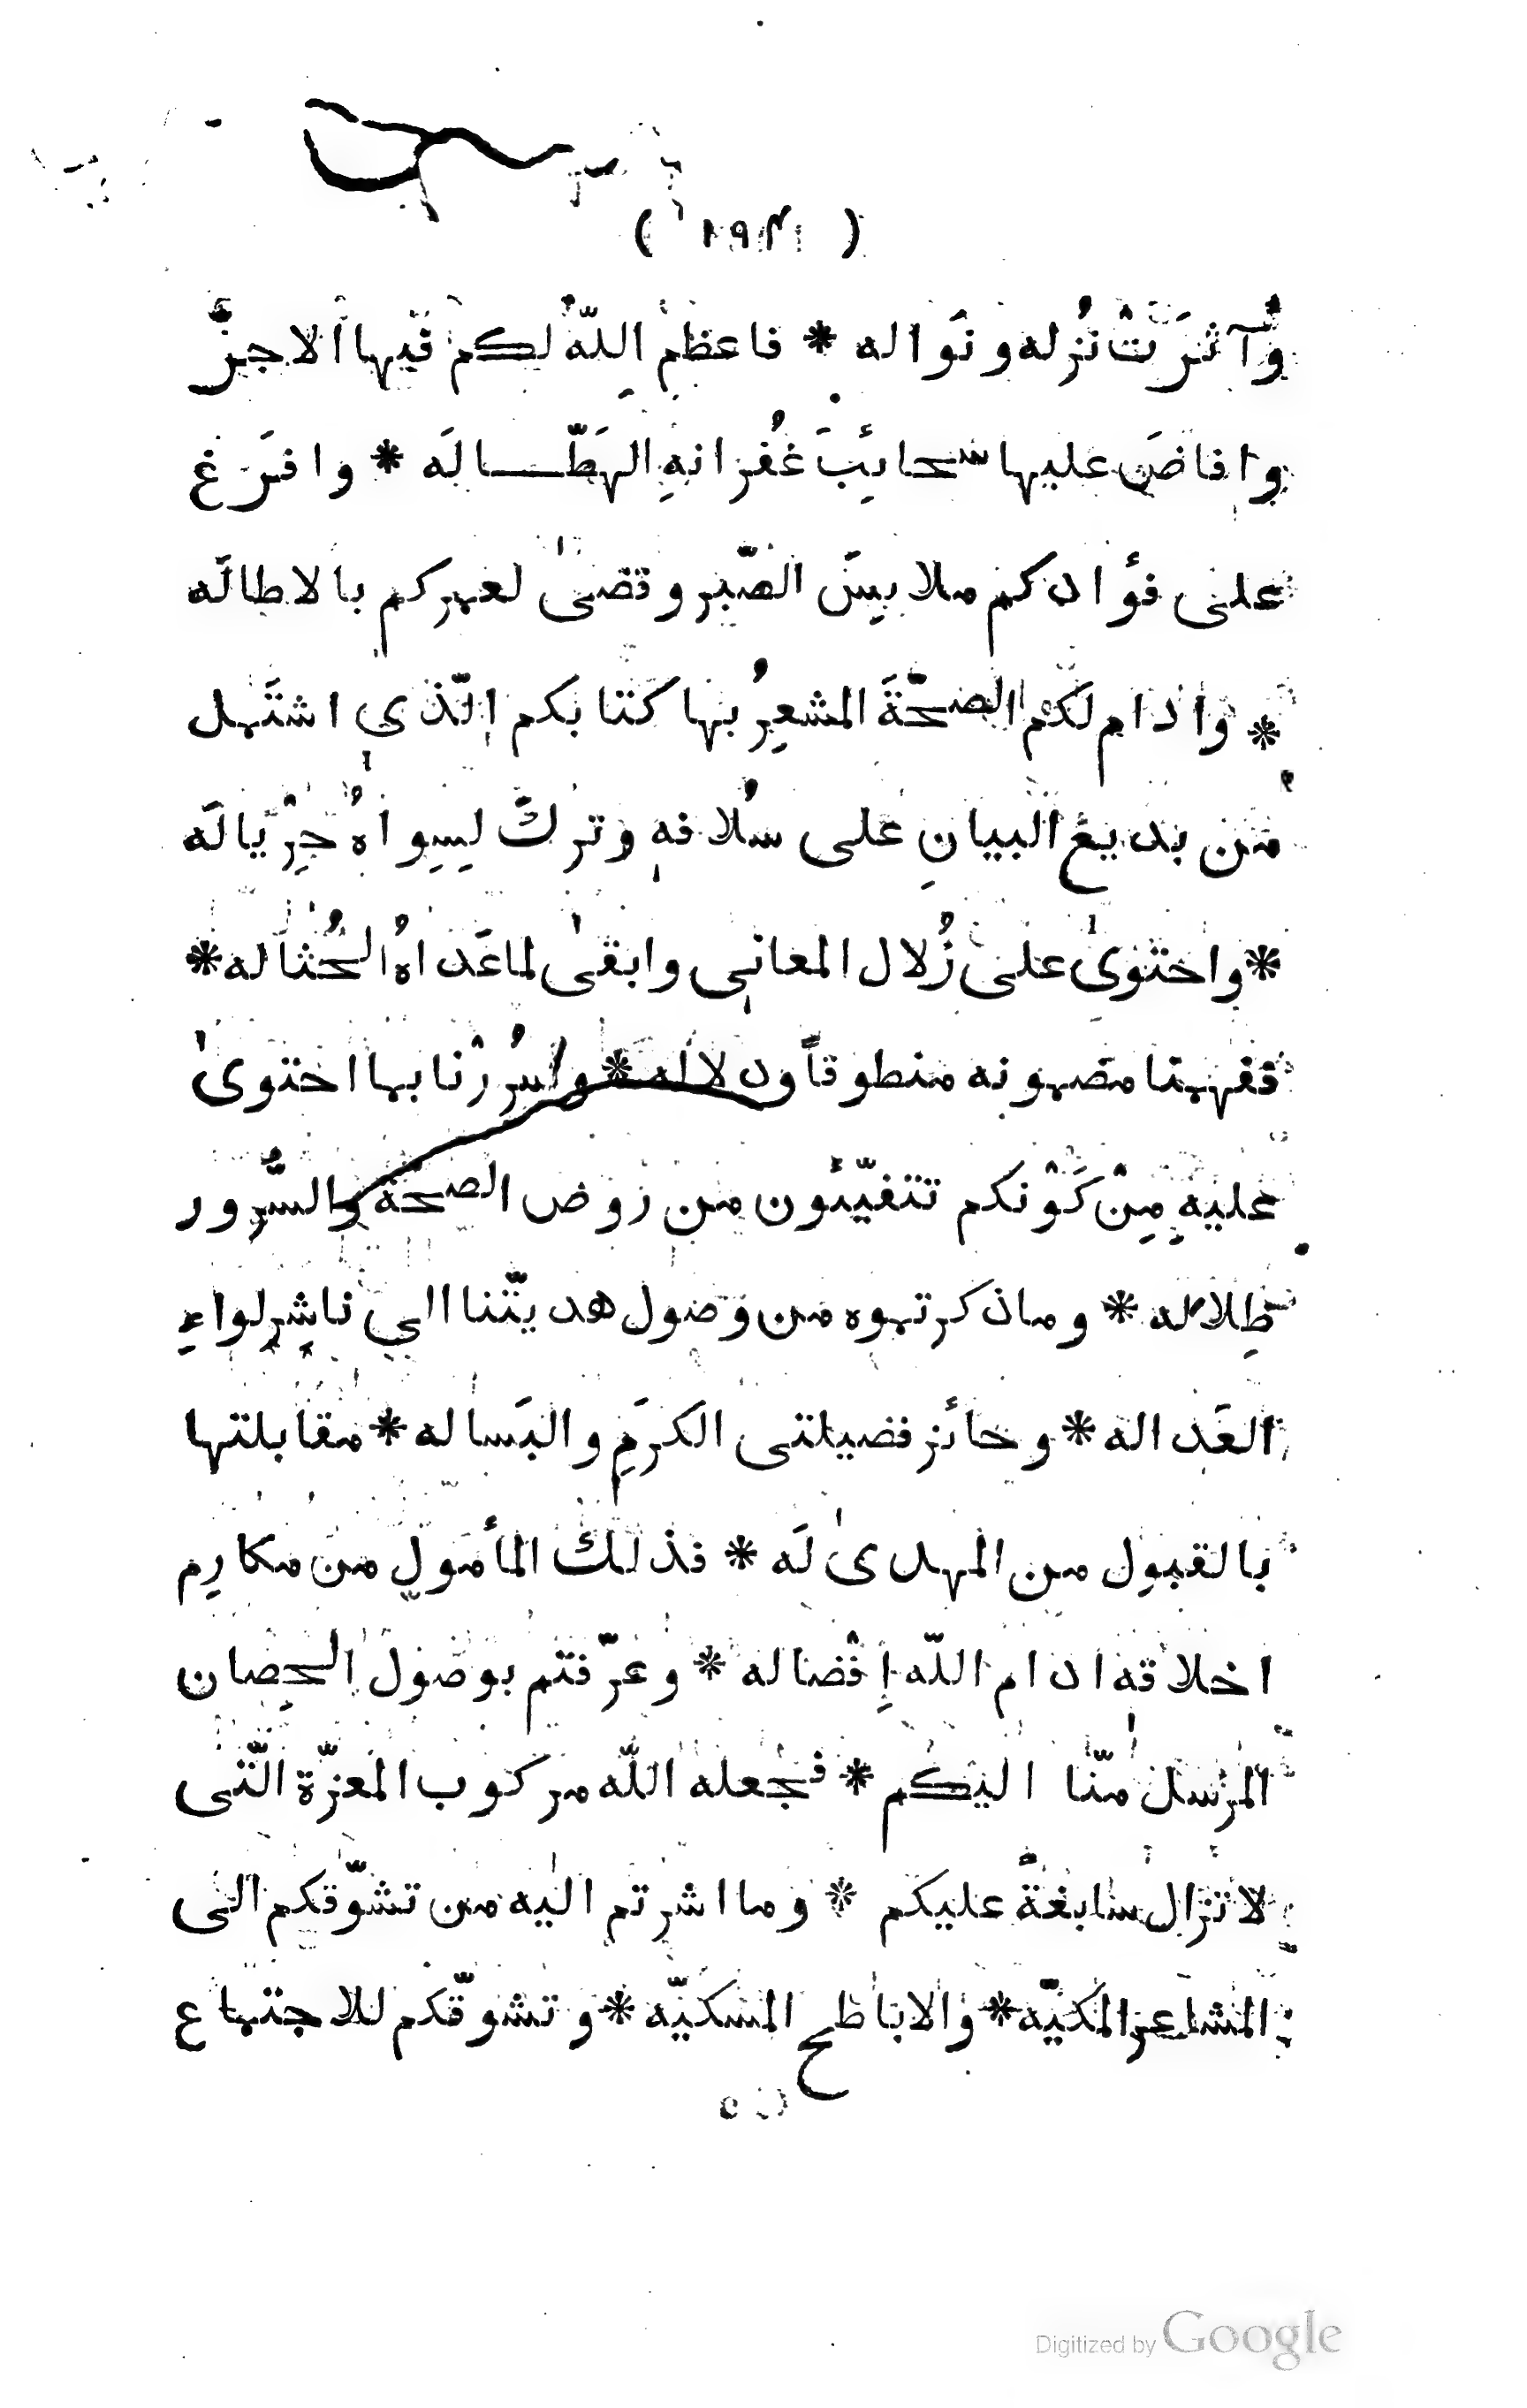 وآثَرَتْ نُزله ونَواله * فاعظم اللّهُ لكم فيها الاجرَ
وافاضَ عليها سحائبَ غُفرانهِ الهَطّــالَه * وافرَغ
على فؤادكم ملابِسَ الصّبر وقضىٰ لعمركم بالاطالَه
* وادام لكم الصحّةَ المشعِرُ بها كتابكم الّذى اشتَمل
من بديع البيانِ على سُلافهِ وتركَ لِسِواهُ جِرْيالَه
* واحتوىٰ على زُلال المعاني وابقىٰ لما عَداهُ الحُثاله *
ففهمنا مضمونه منطوقاً ودلاله * وسُرِرْنا بما احتوىٰ
عليهِ مِنْ كَوْنكم تتفيّئون من روض الصحّة والسُّرور
ظِلاله * وما ذكرتموه من وصول هديّتنا الى ناشِرِ لواءِ
العَداله * وحائز فضيلتى الكرَمِ والبَساله * مقابلتها
بالقبول من المهدىٰ لَه * فذلك المأمول من مكارِم
اخلاقه ادام اللّه اِفْضاله * وعرّفتم بوصول الحِصان
المرسل منّا اليكم * فجعله اللّه مركوب المعزّة الّتى
لا تزال سابغةً عليكم * وما اشرتم اليه من تشوّقكم الى
المشاعر المكيّه * والاباطح المسكيّه * وتشوّقكم للاجتماع
Digitized by Google